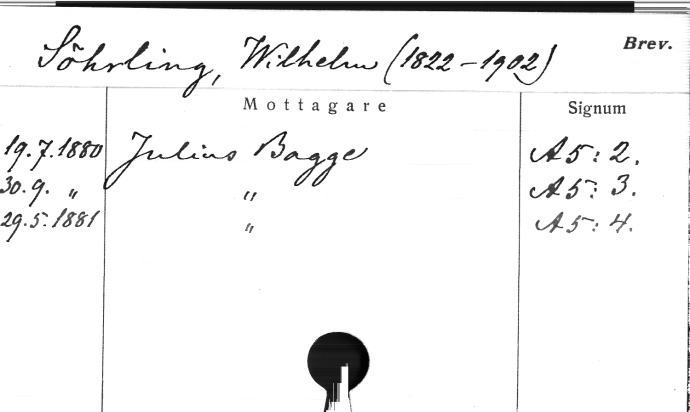 Söhrling, Wilhelm (1822-1902)
Brev.
Mottagare Signum
19.7.1880 Julius Bagge A5: 2.
30.9. „ „ A5: 3.
29.5.1881 „ A5: 4.